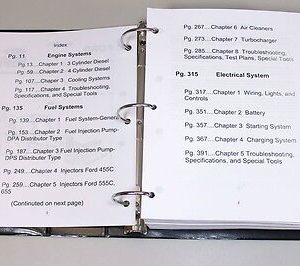 Index
Pg. 11 Engine Systems
Pg. 13....Chapter 1 3 Cylinder Diesel
Pg. 59....Chapter 2 4 Cylinder Diesel
Pg. 107....Chapter 3 Cooling Systems
Pg. 117....Chapter 4 Troubleshooting,
Specifications, and Special Tools
Pg. 135 Fuel Systems
Pg. 139....Chapter 1 Fuel System-General
Pg. 153....Chapter 2 Fuel Injection Pump-
DPA Distributor Type
Pg. 187....Chapter 3 Fuel Injection Pump-
DPS Distributor Type
Pg. 249....Chapter 4 Injectors Ford 455C
Pg. 259....Chapter 5 Injectors Ford 555C,
655
(Continuted on next page)
Pg. 267....Chapter 6 Air Cleaners
Pg. 273....Chapter 7 Turbocharger
Pg. 285....Chapter 8 Troubleshooting,
Specifications, Test Plans, Special Tools
Pg. 315 Electrical System
Pg. 317....Chapter 1 Wiring, Lights, and
Controls
Pg. 351....Chapter 2 Battery
Pg. 357....Chapter 3 Starting System
Pg. 367....Chapter 4 Charging System
Pg. 391....Chapter 5 Troubleshooting,
Specifications, and Special Tools